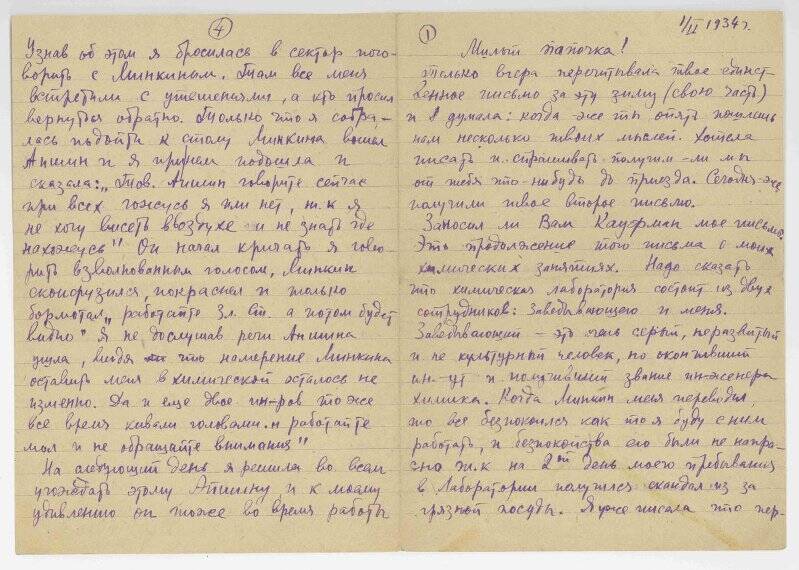 ④
Узнав об этом я бросилась в сектор пого-
ворить с Минкиным. Там все меня
встретили с утешениями, а кто просил
вернуться обратно. Только что я собра-
лась подойти к столу Минкина вошел
Апишин и я прямо подошла и
сказала: „Тов. Апишин говорите сейчас
при всех гожусь я или нет, т.к я
не хочу висеть ввоздухе и не знать где
нахожусь" Он начал кричать я гово-
рить взволнованным голосом, Минкин
сконфузился, покраснел и только
бормотал „работайте Зл. Ст. а потом будет
видно" Я не дослушав речи Апишина
ушла, видя что намерение Минкина
оставить меня в химической осталось не
изменно. Да и еще двое ин-ров тоже
все время кивали головами „работайте
мол и не обращайте внимания"
На следующий день я решила во всем
угождать этому Апишину и к моему
удивлению он тоже во время работы
①
1/II 1934 г.
Милый папочка!
Только вчера перечитывала твое единст-
венное письмо за эту зиму (свою часть)
и я думала: когда же ты опять пошлешь
нам несколько твоих мыслей. Хотела
писать и спрашивать получим-ли мы
от тебя что-нибудь до приезда. Сегодня-же
получили твое второе письмо.
Заносил ли Вам Кауфман мое письмо.
Это продолжение того письма о моих
химических занятиях. Надо сказать
что химическая лаборатория состоит из двух
сотрудников: Заведывающего и меня.
Заведывающий – это очень серый, неразвитый
и не культурный человек, но окончивший
ин-ут и получивший звание инженера
химика. Когда Минкин меня переводил,
то все безпокоился как то я буду с ним
работать, и безпокойства его были не напра-
сно т.к на 2ой день моего пребывания
в Лаборатории получился скандал из за
грязной посуды. Я уже писала что пер-